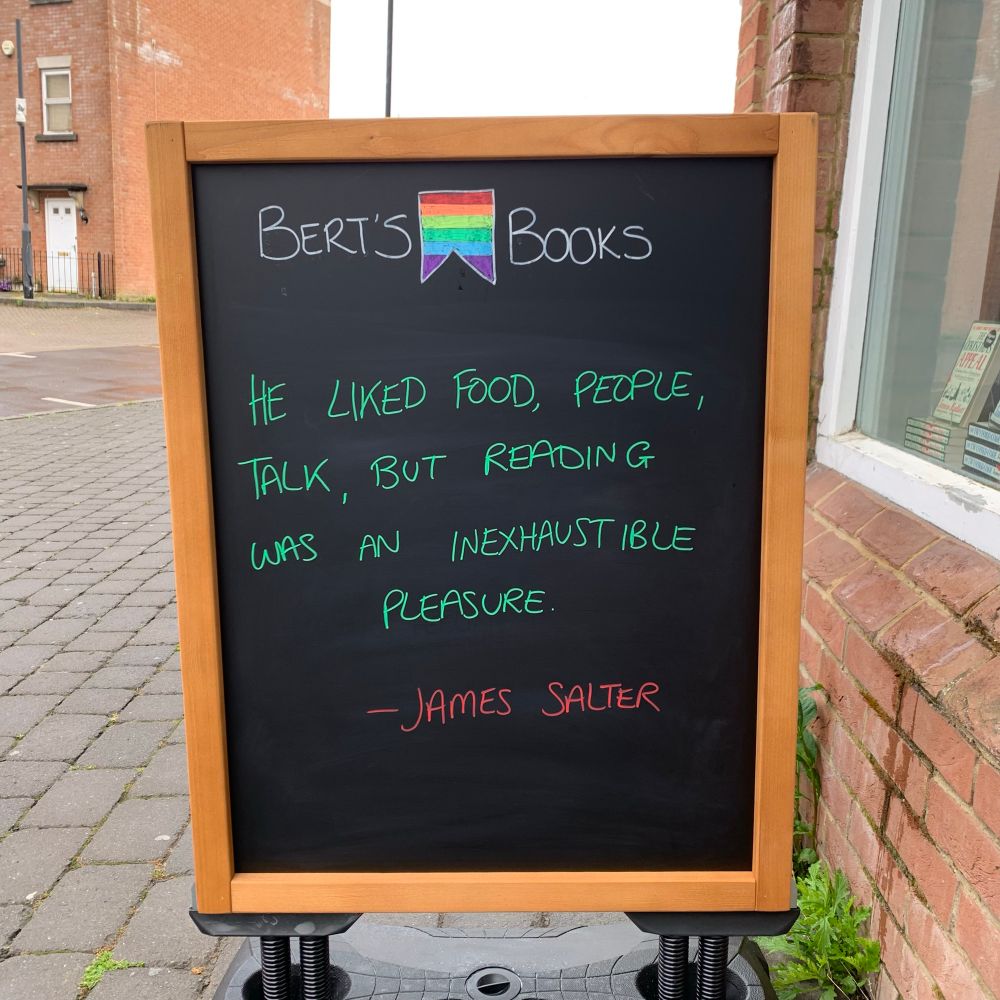 BERT'S BOOKS
HE LIKED FOOD, PEOPLE,
TALK, BUT READING
WAS AN INEXHAUSTIBLE
PLEASURE.
—JAMES SALTER
APPEAL